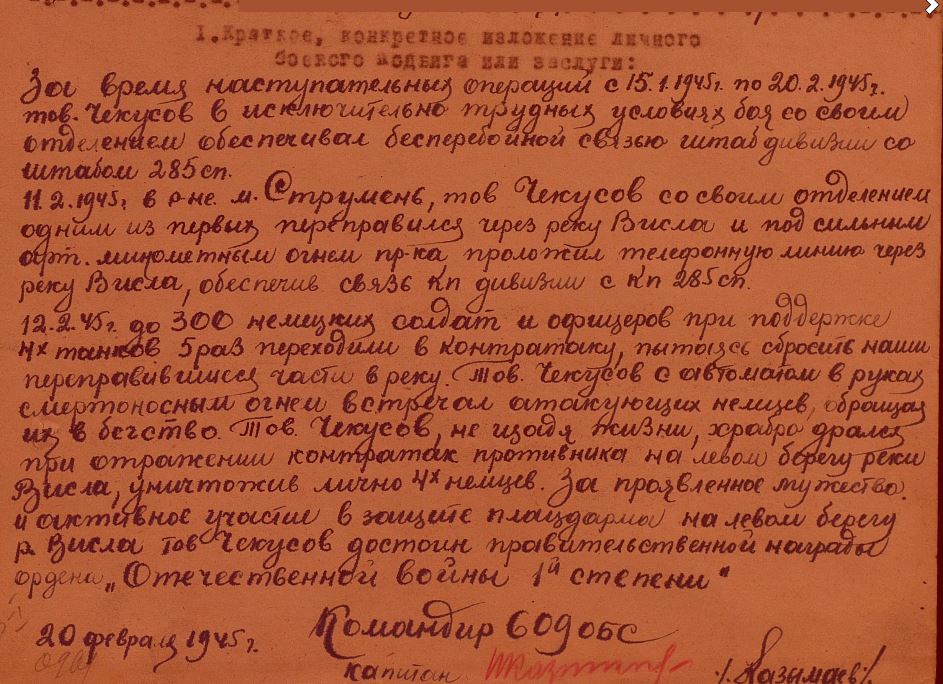 I. Краткое, конкретное изложение личного
боевого подвига или заслуги:
За время наступательных операций с 15.1.1945г. по 20.2.1945г.
тов. Чекусов в исключительно трудных условиях боя со своим
отделением обеспечивал бесперебойной связью штаб дивизии со
штабом 285сп.
11.2.1945г. в р-не м. Струмень, тов Чекусов со своим отделением
одним из первых переправился через реку Висла и под сильным
арт. минометным огнем пр-ка проложил телефонную линию через
реку Висла, обеспечив связь Кп дивизии с Кп 285сп.
12.2.45г. до 300 немецких солдат и офицеров при поддержке
4х танков 5 раз переходили в контратаку, пытаясь сбросить наши
переправившиеся части в реку. Тов. Чекусов с автоматом в руках
смертоносным огнем встречал атакующих немцев, обращая
их в бегство. Тов. Чекусов, не щадя жизни, храбро дрался
при отражении контратак противника на левом берегу реки
Висла, уничтожив лично 4х немцев. За проявленное мужество
и активное участие в защите плацдарма на левом берегу
р. Висла тов Чекусов достоин правительственной награды
ордена „Отечественной войны 1й степени"
Командир 609 обс
20 февраля 1945г.
капитан /Казымаев/